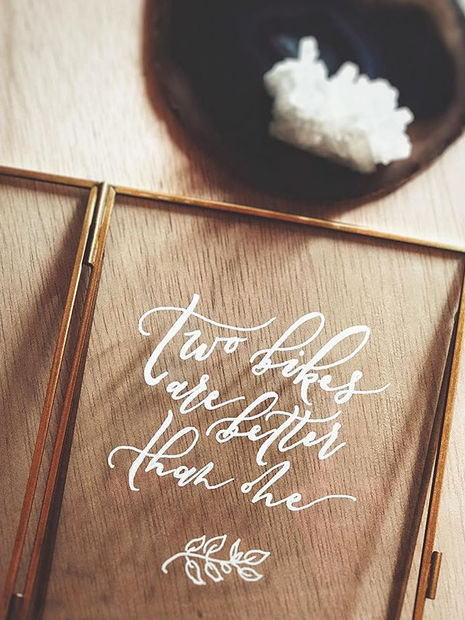 Two bikes
are better
than one